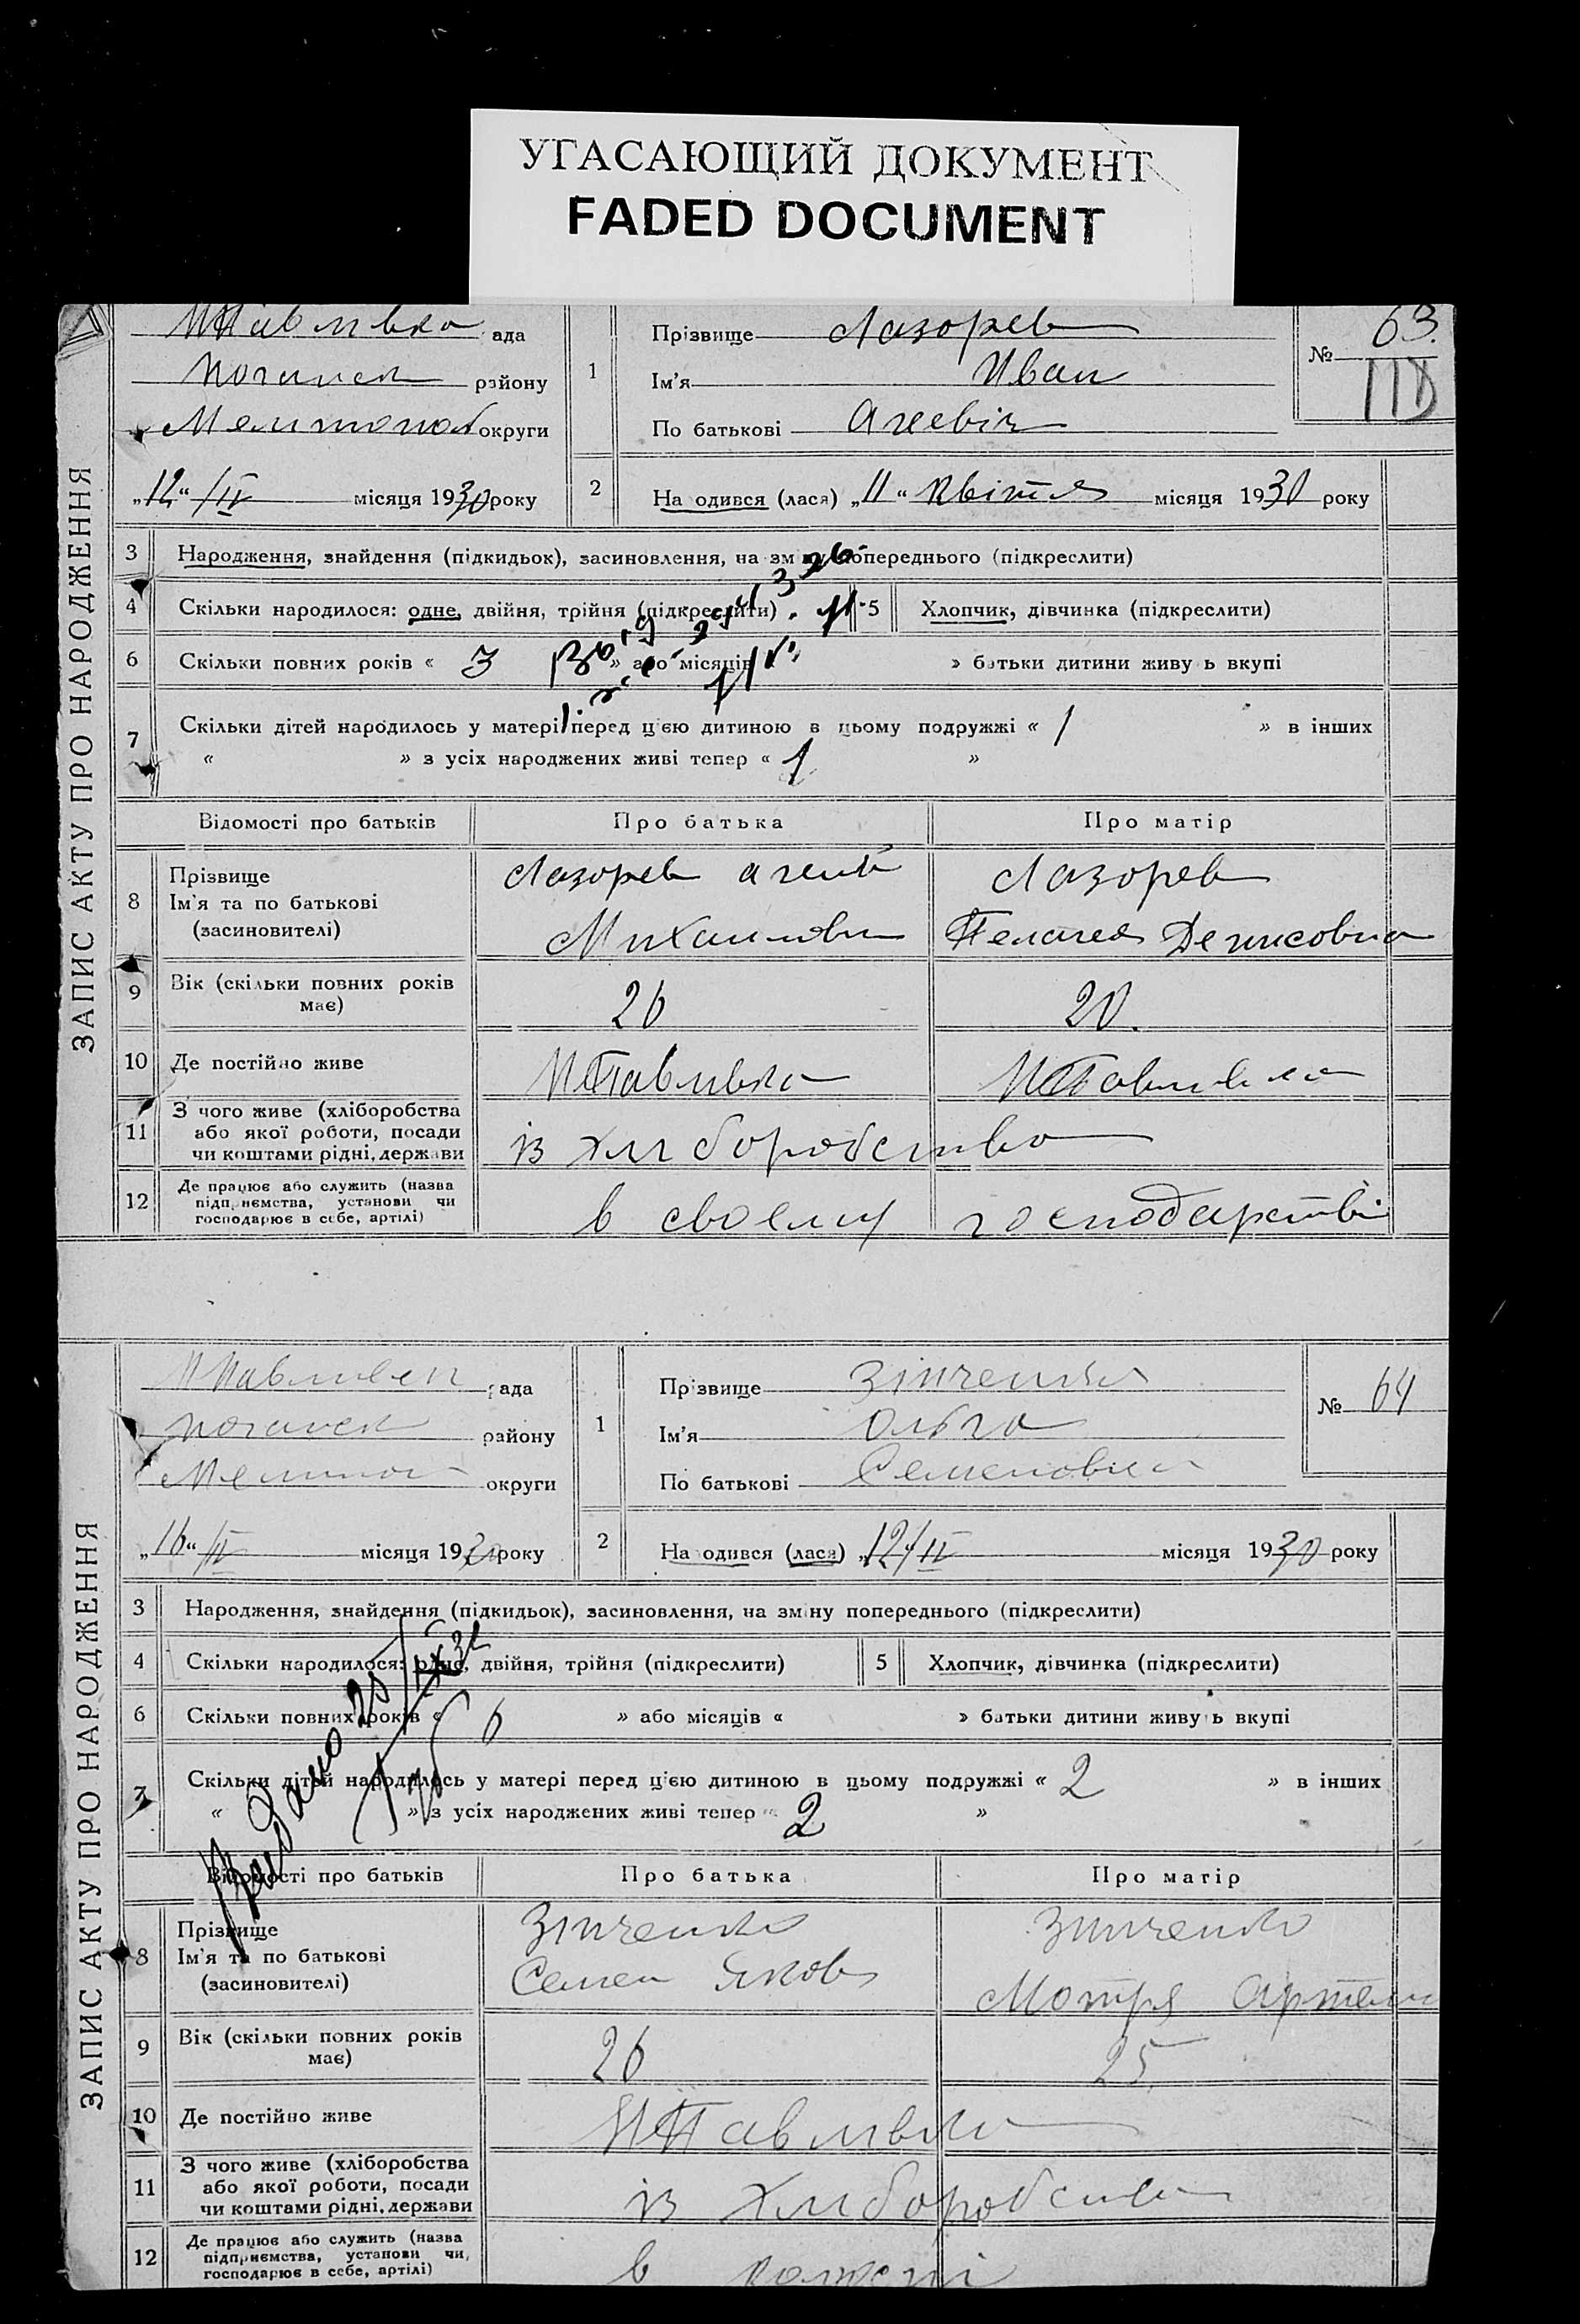 УГАСАЮЩИЙ ДОКУМЕНТ
FADED DOCUMENT
ЗАПИС АКТУ ПРО НАРОДЖЕННЯ
ада
району
Мелитопол округи
„12“ IV місяця 1930 року
1
Прізвище Лазорев
Ім'я Иван
По батькові Агеевіч
№ 63.
2
На одився (лася) „11“ Квітня місяця 1930 року
3 Народження, знайдення (підкидьок), засиновлення, на зм ну попереднього (підкреслити)
4 Скільки народилося: одне, двійня, трійня (підкреслити)
5 Хлопчик, дівчинка (підкреслити)
6 Скільки повних років « 3 » або місяців » батьки дитини живу ь вкупі
7 Скільки дітей народилось у матері перед ц'єю дитиною в цьому подружжі « 1 » в інших
« » з усіх народжених живі тепер « 1 »
Відомості про батьків Про батька Про матір
8 Прізвище
Ім'я та по батькові
(засиновителі)
Лазорев Агей
Михайлович
Лазорев
Пелагея Денисовна
9 Вік (скільки повних років має) 26 20.
10 Де постійно живе
11 З чого живе (хліборобства
або якої роботи, посади
чи коштами рідні, держави
із хліборобства
12 Де працює або служить (назва
підприємства, установи чи
господарює в себе, артілі)
в своему господарстві
ЗАПИС АКТУ ПРО НАРОДЖЕННЯ
рада
району
округи
„16“ IV місяця 1930 року
1
Прізвище Зінченко
Ім'я Ольга
По батькові Семеновна
№ 64
2
На одився (лася) „12“ IV місяця 1930 року
3 Народження, знайдення (підкидьок), засиновлення, на зміну попереднього (підкреслити)
4 Скільки народилося: одне, двійня, трійня (підкреслити)
5 Хлопчик, дівчинка (підкреслити)
6 Скільки повних років « 6 » або місяців « » батьки дитини живу ь вкупі
7 Скільки дітей народилось у матері перед ц'єю дитиною в цьому подружжі « 2 » в інших
« » з усіх народжених живі тепер « 2 »
Відомості про батьків Про батька Про матір
8 Прізвище
Ім'я та по батькові
(засиновителі)
Зінченко
Семен Яков
Зинченко
Мотря Артем
9 Вік (скільки повних років має) 26 25
10 Де постійно живе
11 З чого живе (хліборобства
або якої роботи, посади
чи коштами рідні, держави
із хліборобства
12 Де працює або служить (назва
підприємства, установи чи
господарює в себе, артілі)
в